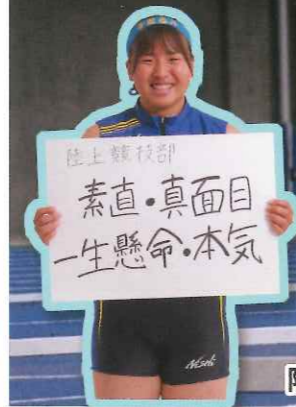 陸上競技部
素直・真面目
一生懸命・本気